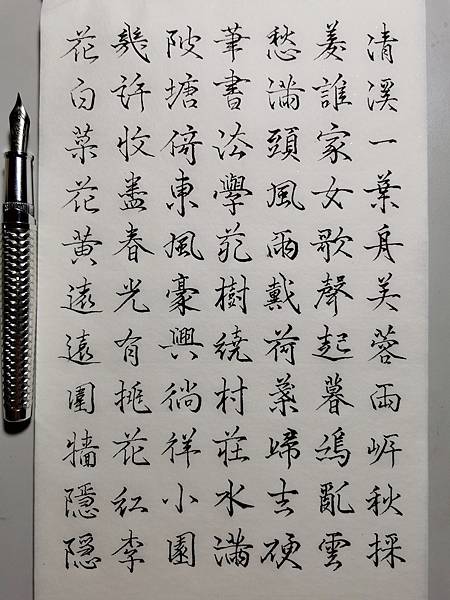 清溪一葉舟芙蓉兩岸秋採
菱誰家女歌聲起暮鷗亂雲
愁滿頭風雨戴荷葉歸去硬
筆書法學苑樹繞村莊水滿
陂塘倚東風豪興徜祥小園
幾許收盡春光有桃花紅李
花白菜花黃遠遠圍牆隱隱